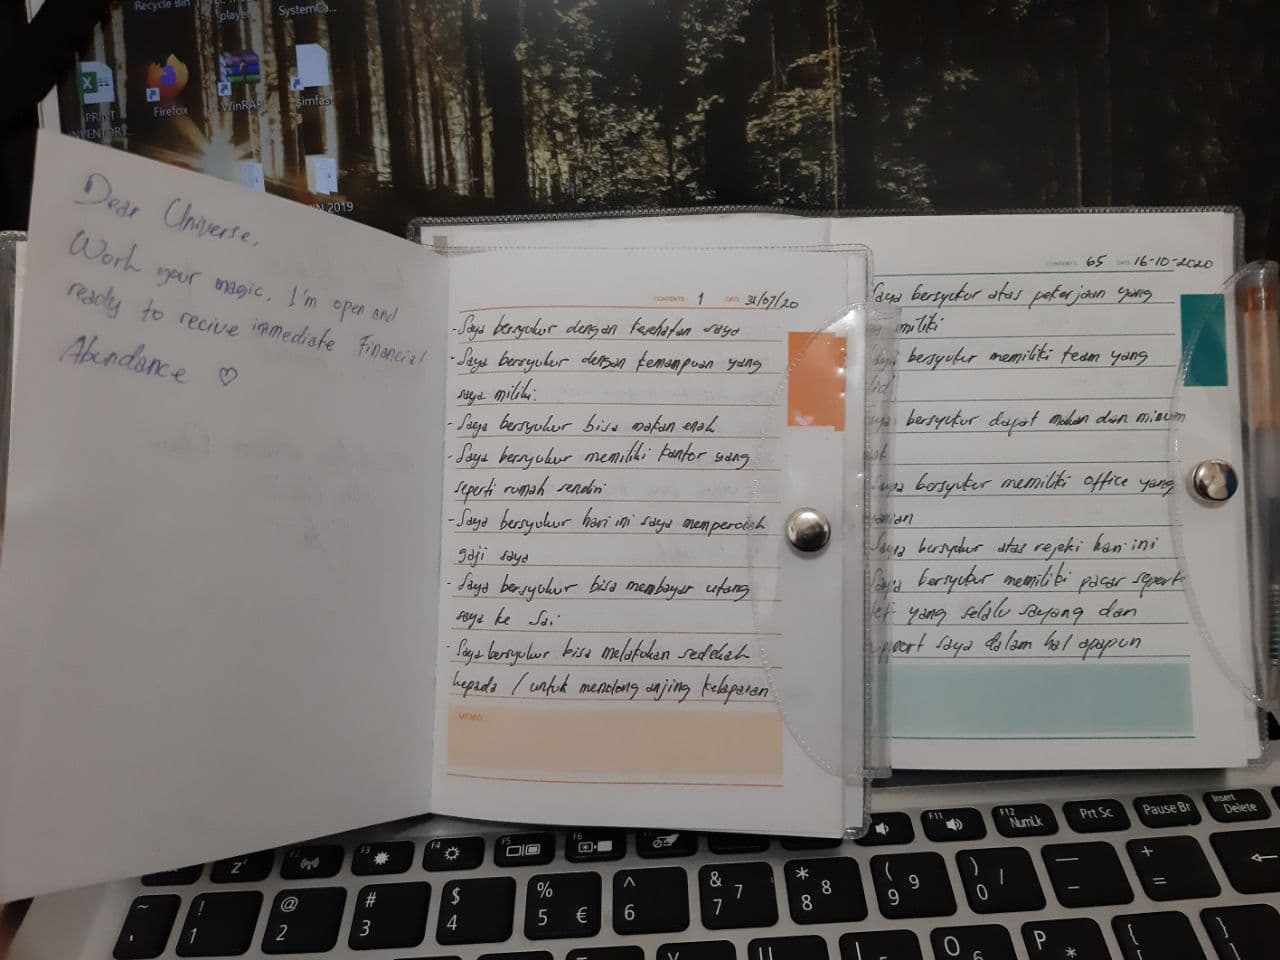 Recycle Bin
player
SystemCa...
PRINT
INVENTORY...
Firefox
WinRAR
simfast
2019
Dear Universe,
Work your magic. I'm open and
ready to recive immediate Financial
Abundance ♡
CONTENTS 1 DATE 31/07/20
- Saya bersyukur dengan kesehatan saya
- Saya bersyukur dengan kemampuan yang
saya miliki.
- Saya bersyukur bisa makan enak
- Saya bersyukur memiliki kantor yang
seperti rumah sendiri
- Saya bersyukur hari ini saya memperoleh
gaji saya
- Saya bersyukur bisa membayar utang
saya ke Sai
- Saya bersyukur bisa melakukan sedekah
kepada / untuk menolong anjing kelaparan
MEMO
CONTENTS 65 DATE 16-10-2020
Saya bersyukur atas pekerjaan yang
miliki
bersyukur memiliki team yang
bersyukur dapat makan dan minum
Saya bersyukur memiliki office yang
Saya bersyukur atas rejeki hari ini
Saya bersyukur memiliki pacar seperti
yang selalu sayang dan
support saya dalam hal apapun
F3
F4
F5
F6
F11
F12
NumLk
Prt Sc
Pause Br
Insert
Delete
~
! 1
@ 2
# 3
$ 4
% 5 €
^ 6
& 7 7
* 8 8
( 9 9
) 0 /
—
+ =
O
P *
{ [
} ]